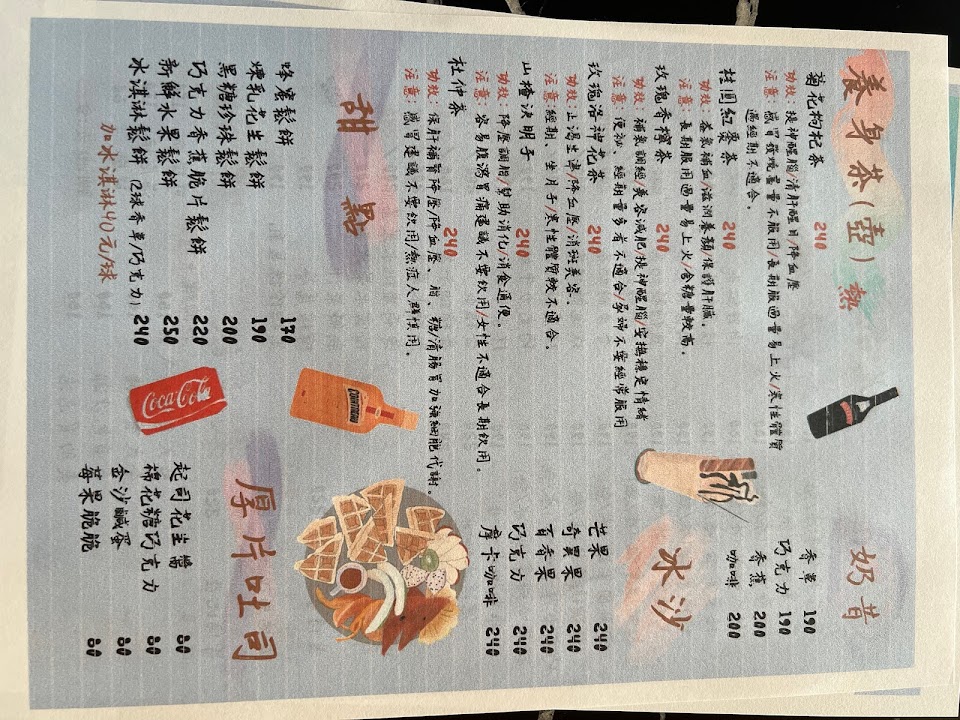 養身茶(壺) 熱
菊花枸杞茶 240
功效:提神醒腦/清肝醒目/降血壓
注意:感冒發燒盡量不服用/長期服過量易上火/寒性體質
遇經期不適合。
桂圓紅棗茶 240
功效:養氣補血/滋潤養顏/保護肝臟。
注意:長期服用過量易上火/含糖量較高。
玫瑰香檸茶 240
功效:補氣調經美容減肥提神醒腦/安撫穩定情緒
注意:便祕、經期量多者不適合/孕婦不要經常服用
玫瑰洛神花茶 240
功效:止渴生津/降血壓/消斑美容。
注意:經期、坐月子/寒性體質較不適合。
山楂決明子 240
功效:降壓調脂/幫助消化/消食通便。
注意:容易腹瀉胃痛建議不要飲用/女性不適合長期飲用。
杜仲茶 240
功效:保肝補腎降壓/降血壓、脂、糖/清腸胃加強細胞代謝。
注意:感冒建議不要飲用/熱症人群慎用。
甜點
蜂蜜鬆餅 170
煉乳花生鬆餅 190
黑糖珍珠鬆餅 200
巧克力香蕉脆片鬆餅 220
新鮮水果鬆餅 250
冰淇淋鬆餅(2球香草/巧克力) 240
加冰淇淋40元/球
奶昔
香草 190
巧克力 190
香蕉 200
咖啡 200
冰沙
芒果 240
奇異果 240
百香果 240
巧克力 240
摩卡咖啡 240
厚片吐司
起司花生醬 80
棉花糖巧克力 80
金沙鹹蛋 80
莓果脆脆 80
Coca-Cola
COINTREAU